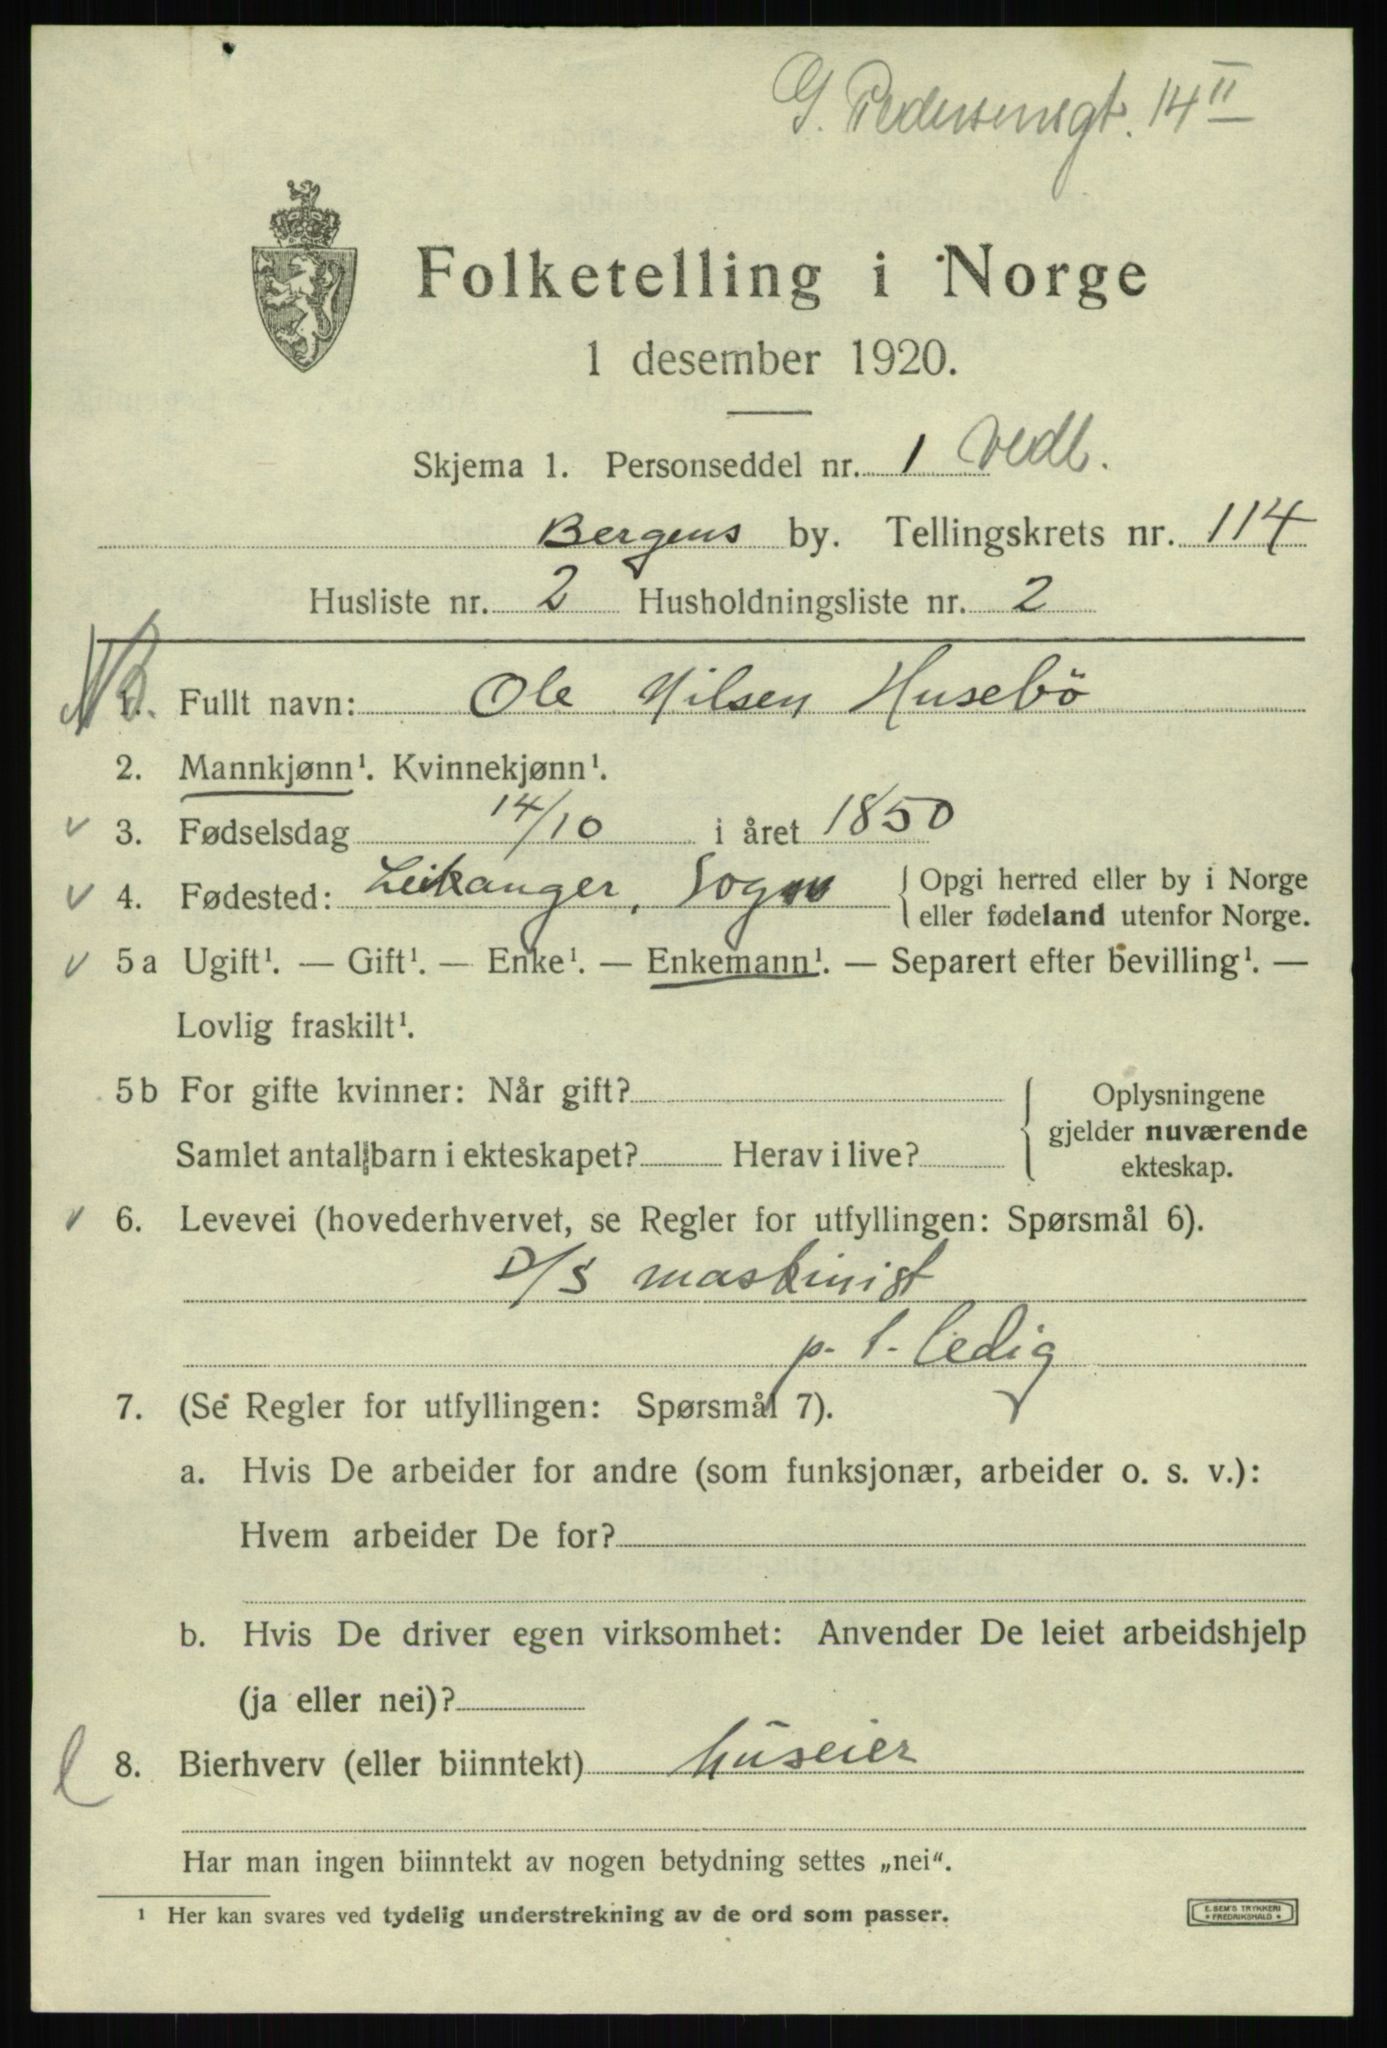 G. Pedersensgt. 14 II
Folketelling i Norge
1 desember 1920.
Skjema 1. Personseddel nr. 1 vedb.
Bergens by. Tellingskrets nr. 114
Husliste nr. 2 Husholdningsliste nr. 2
NB.
1. Fullt navn: Ole Nilsen Husebö
2. Mannkjønn¹. Kvinnekjønn¹.
3. Fødselsdag 14/10 i året 1850
4. Fødested: Leikanger, Sogn { Opgi herred eller by i Norge
eller fødeland utenfor Norge.
5 a Ugift¹. — Gift¹. — Enke¹. — Enkemann¹. — Separert efter bevilling¹. —
Lovlig fraskilt¹.
5 b For gifte kvinner: Når gift?
Samlet antall barn i ekteskapet? Herav i live?
{ Oplysningene
gjelder nuværende
ekteskap.
6. Levevei (hovederhvervet, se Regler for utfyllingen: Spørsmål 6).
D/S maskinist
p. t. ledig
7. (Se Regler for utfyllingen: Spørsmål 7).
a. Hvis De arbeider for andre (som funksjonær, arbeider o. s. v.):
Hvem arbeider De for?
b. Hvis De driver egen virksomhet: Anvender De leiet arbeidshjelp
(ja eller nei)?
8. Bierhverv (eller biinntekt) Huseier
Har man ingen biinntekt av nogen betydning settes „nei“.
¹ Her kan svares ved tydelig understrekning av de ord som passer.
E. SEM'S TRYKKERI
• FREDRIKSHALD •